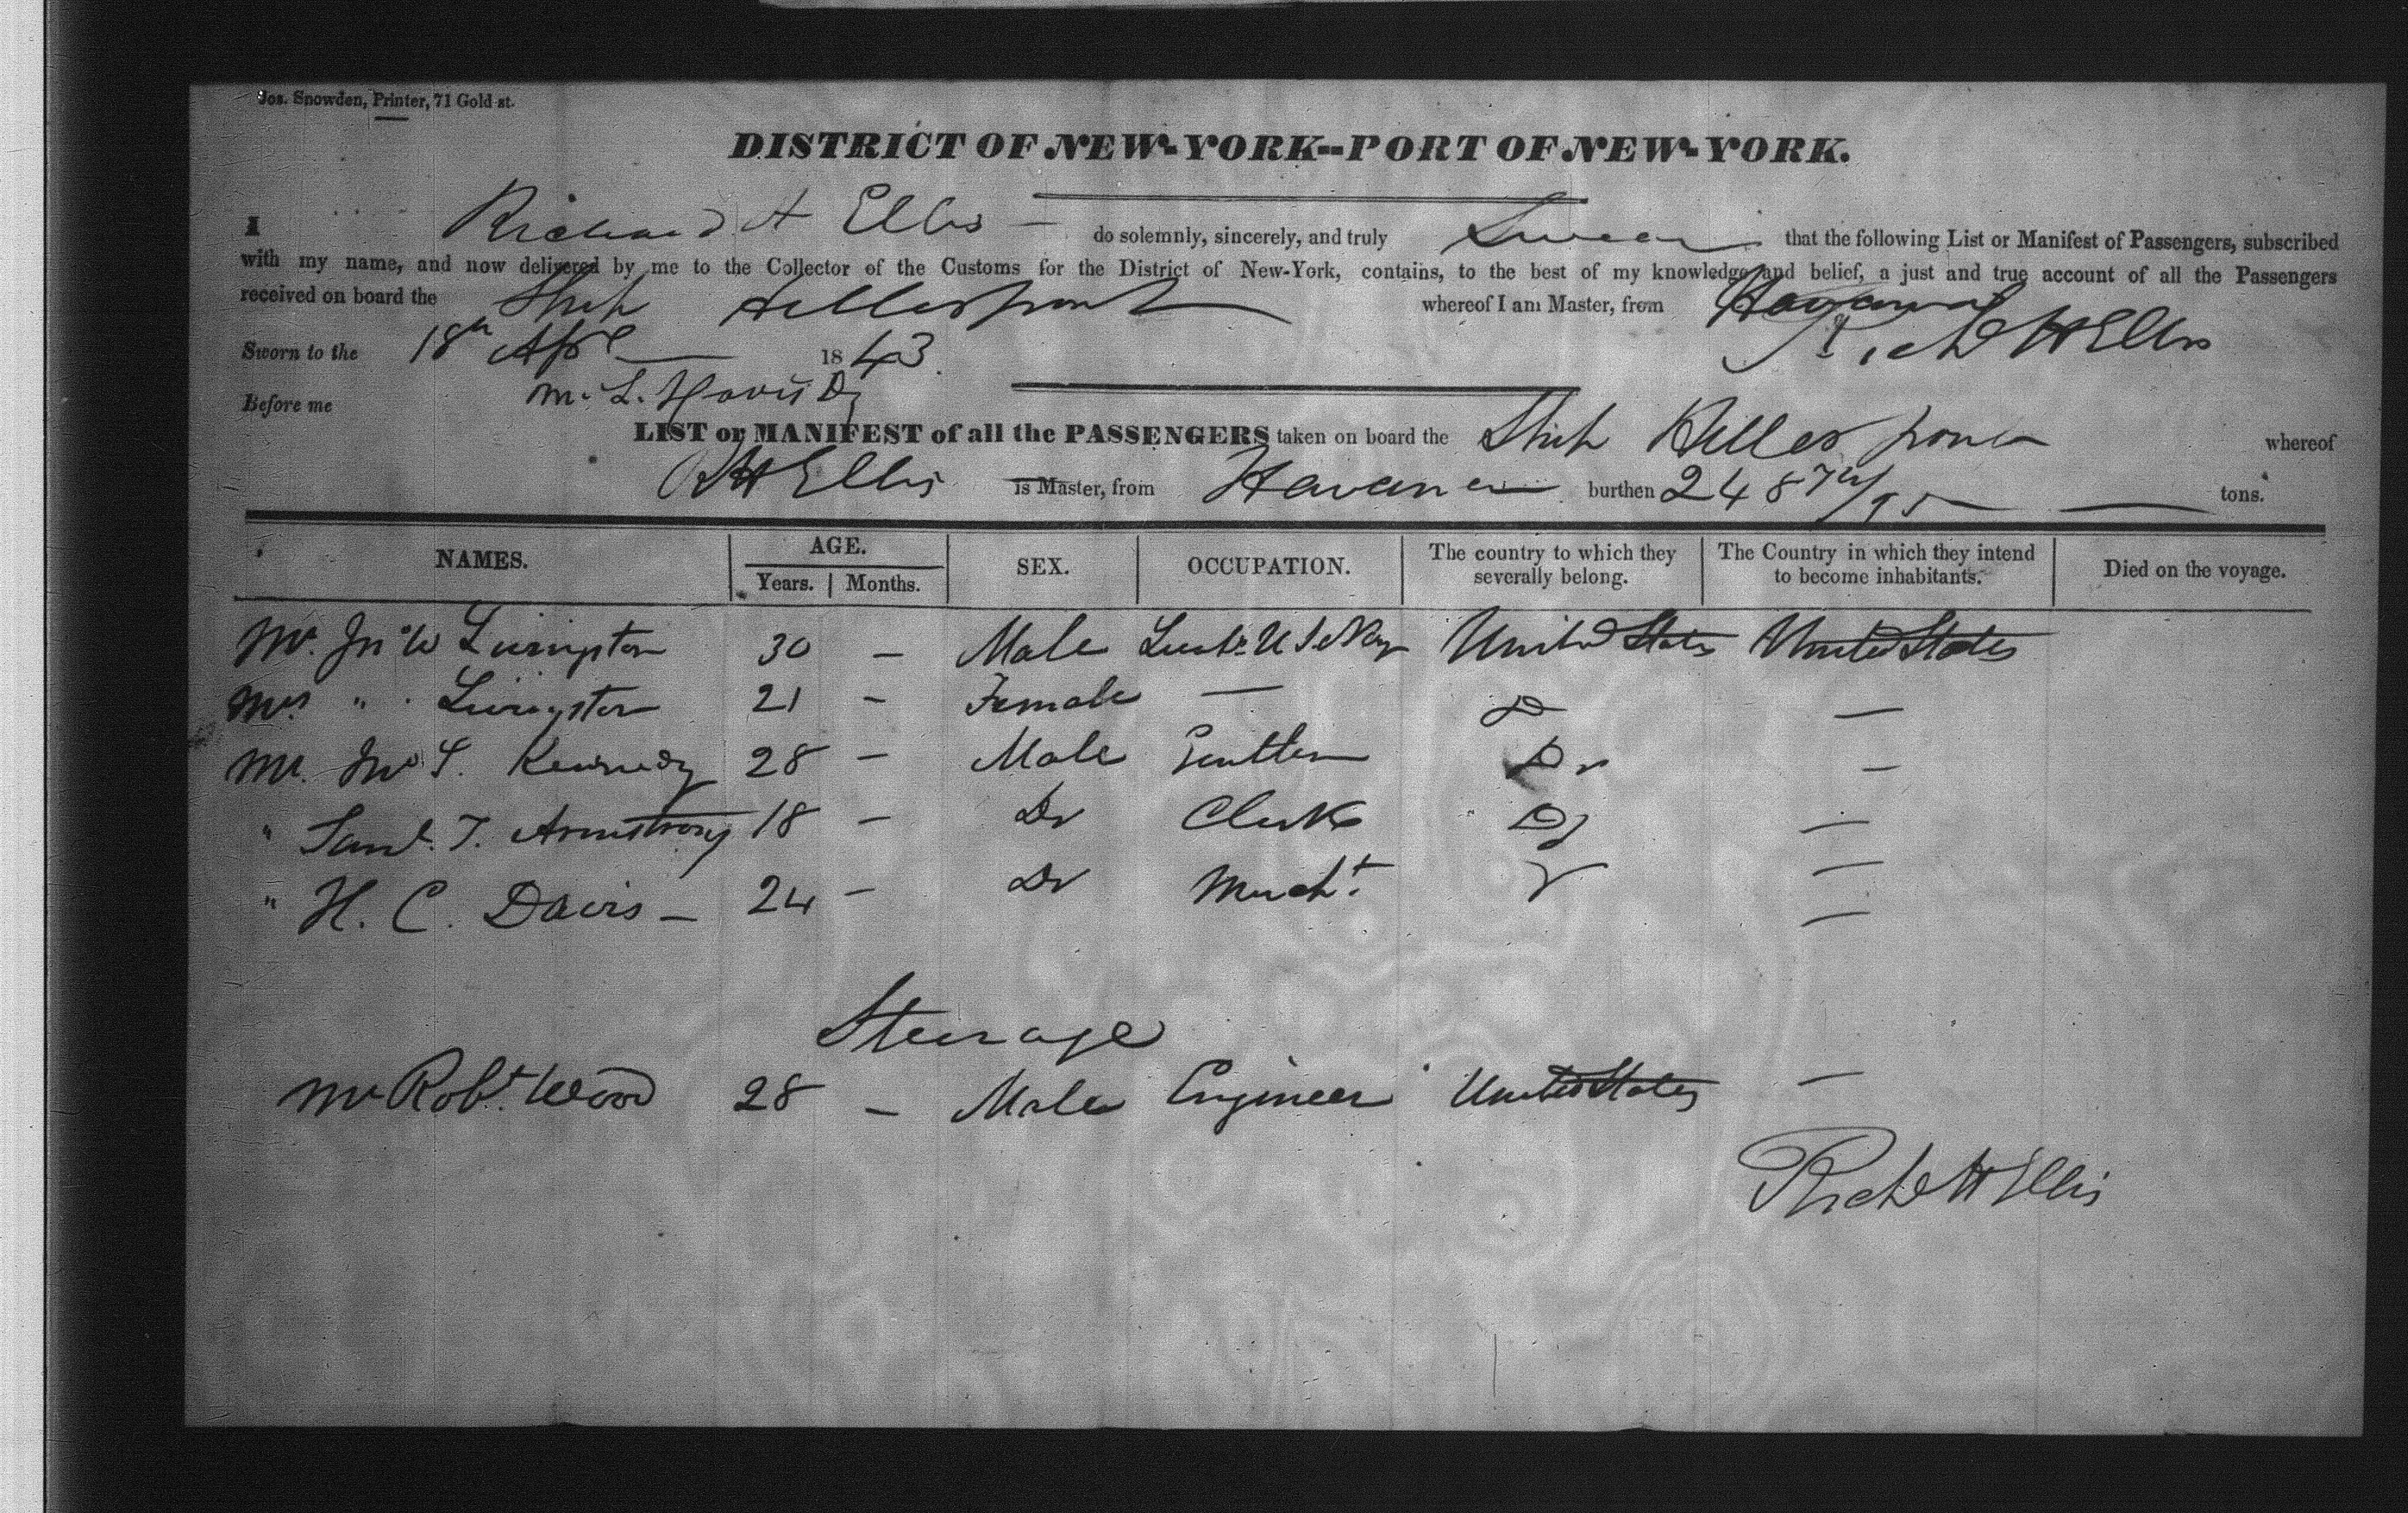 Jos. Snowden, Printer, 71 Gold st.
DISTRICT OF NEW-YORK--PORT OF NEW-YORK.
I Richard H Ellis — do solemnly, sincerely, and truly Swear that the following List or Manifest of Passengers, subscribed
with my name, and now delivered by me to the Collector of the Customs for the District of New-York, contains, to the best of my knowledge and belief, a just and true account of all the Passengers
received on board the Ship Hellespont whereof I am Master, from Havanna
Richd H Ellis
Sworn to the 18th Apl 1843.
Before me M. L.
LIST or MANIFEST of all the PASSENGERS taken on board the Ship Hellespont whereof
R H Ellis is Master, from Havana burthen 248 74/95 tons.
NAMES. AGE. Years. Months. SEX. OCCUPATION. The country to which they severally belong. The Country in which they intend to become inhabitants. Died on the voyage.
Mr. Jno W Livingston 30 — Male Lieut. U S Navy United States United States
Mrs. " Livingston 21 — Female — Do —
Mr. Jno S. Kennedy 28 — Male Gentlem Do —
" Saml. T. Armstrong 18 — Do Clerk Do —
" H. C. Davis — 24 — Do Mercht. —
Steerage
Mr Robt. Wood 28 — Male Engineer United States —
Richd H Ellis